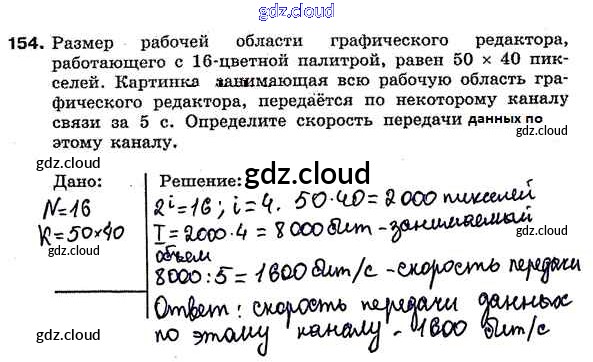 gdz.cloud
154. Размер рабочей области графического редактора,
работающего с 16-цветной палитрой, равен 50 × 40 пик-
селей. Картинка занимающая всю рабочую область гра-
фического редактора, передаётся по некоторому каналу
связи за 5 с. Определите скорость передачи данных по
этому каналу.
gdz.cloud
gdz.cloud
gdz.cloud
Дано:
Решение:
N=16
K=50×40
2^i=16; i=4. 50·40=2000 пикселей
I=2000·4=8000 бит - занимаемый
объем
8000:5=1600 бит/с - скорость передачи
Ответ: скорость передачи данных
по этому каналу - 1600 бит/с
gdz.cloud
gdz.cloud
gdz.cloud
gdz.cloud